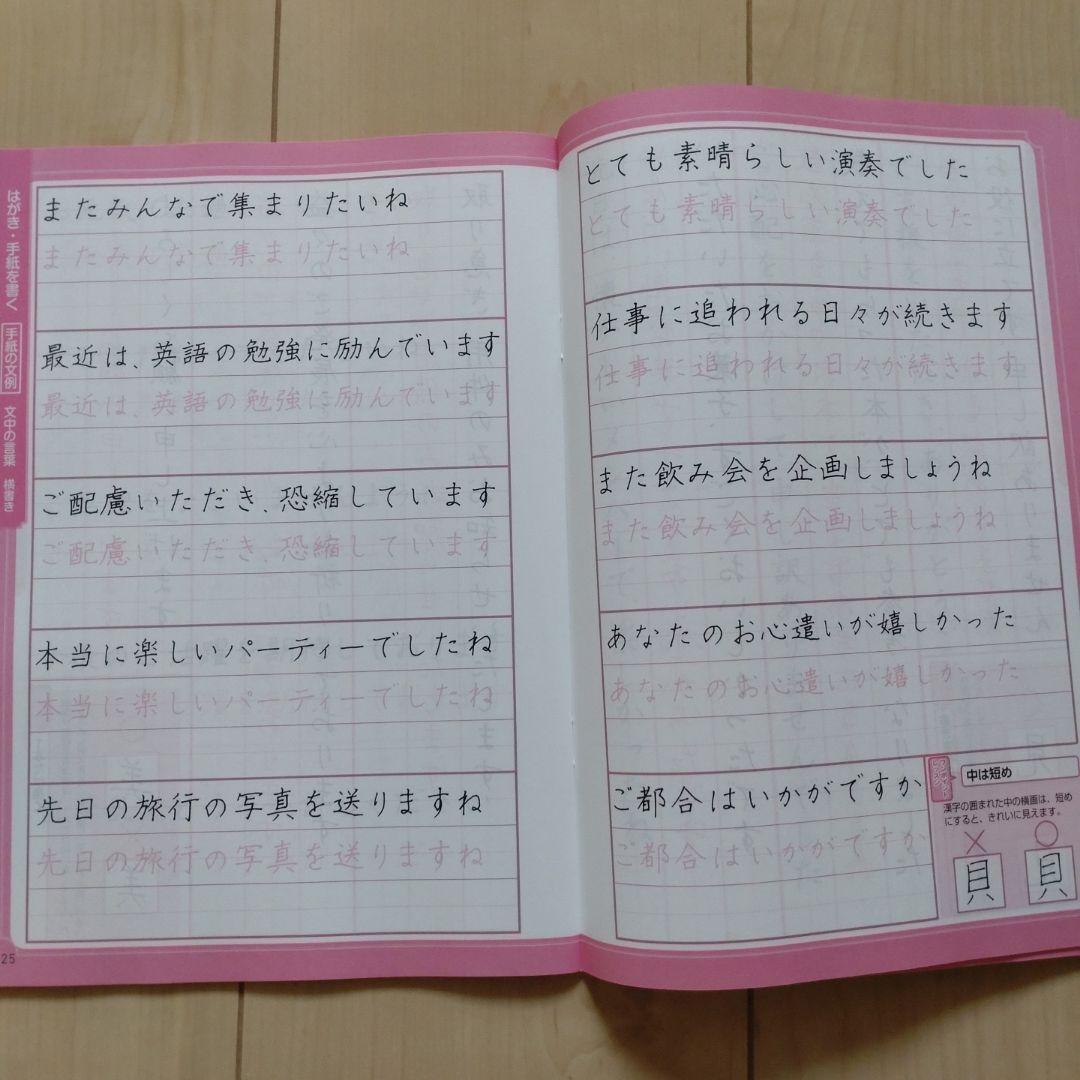 はがき・手紙を書く 手紙の文例 文中の言葉 横書き
またみんなで集まりたいね
またみんなで集まりたいね
最近は、英語の勉強に励んでいます
最近は、英語の勉強に励んでいます
ご配慮いただき、恐縮しています
ご配慮いただき、恐縮しています
本当に楽しいパーティーでしたね
本当に楽しいパーティーでしたね
先日の旅行の写真を送りますね
先日の旅行の写真を送りますね
25
とても素晴らしい演奏でした
とても素晴らしい演奏でした
仕事に追われる日々が続きます
仕事に追われる日々が続きます
また飲み会を企画しましょうね
また飲み会を企画しましょうね
あなたのお心遣いが嬉しかった
あなたのお心遣いが嬉しかった
ご都合はいかがですか
ご都合はいかがですか
中は短め
漢字の囲まれた中の横画は、短め
にすると、きれいに見えます。
× ○
貝 貝